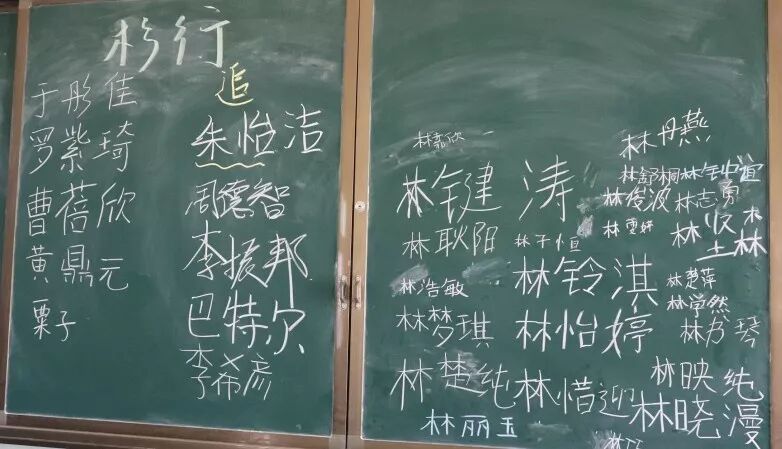 杉行
追
于彤佳
罗紫琦
曹蓓欣
黄鼎元
粟子
朱怡洁
周德智
李振邦
巴特尔
李希彦
林嘉欣
林丹燕
林键涛
林俊波
林志勇
林耿阳
林子恒
林雯婷
林浩敏
林铃淇
林楚萍
林学然
林梦琪
林怡婷
林楚纯
林惜迎
林映纯
林晓漫
林丽玉